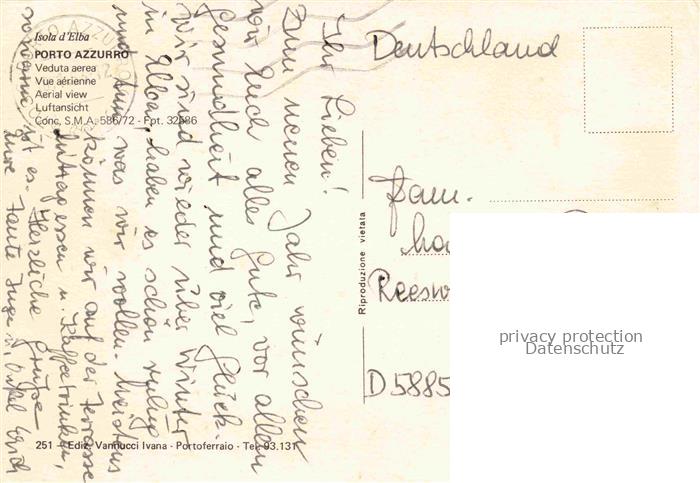 Isola d'Elba
PORTO AZZURRO
Veduta aerea
Vue aérienne
Aerial view
Luftansicht
Conc. S.M.A. 586/72 - Fpt. 32586
Ihr Lieben!
Zum neuen Jahr wünschen
wir Euch alles Gute, vor allem
Gesundheit und viel Glück.
Wir sind wieder über Winter
in Elba, haben es schön ruhig
und tun was wir wollen. Meistens
können wir auf der Terrasse
Mittagessen u. Kaffeetrinken,
so warm ist es. Herzliche Grüße
Eure Tante Inge u. Onkel
251 - Ediz. Vannucci Ivana - Portoferraio - Tel. 93.131
Riproduzione vietata
Deutschland
Fam.
D 5885
privacy protection
Datenschutz